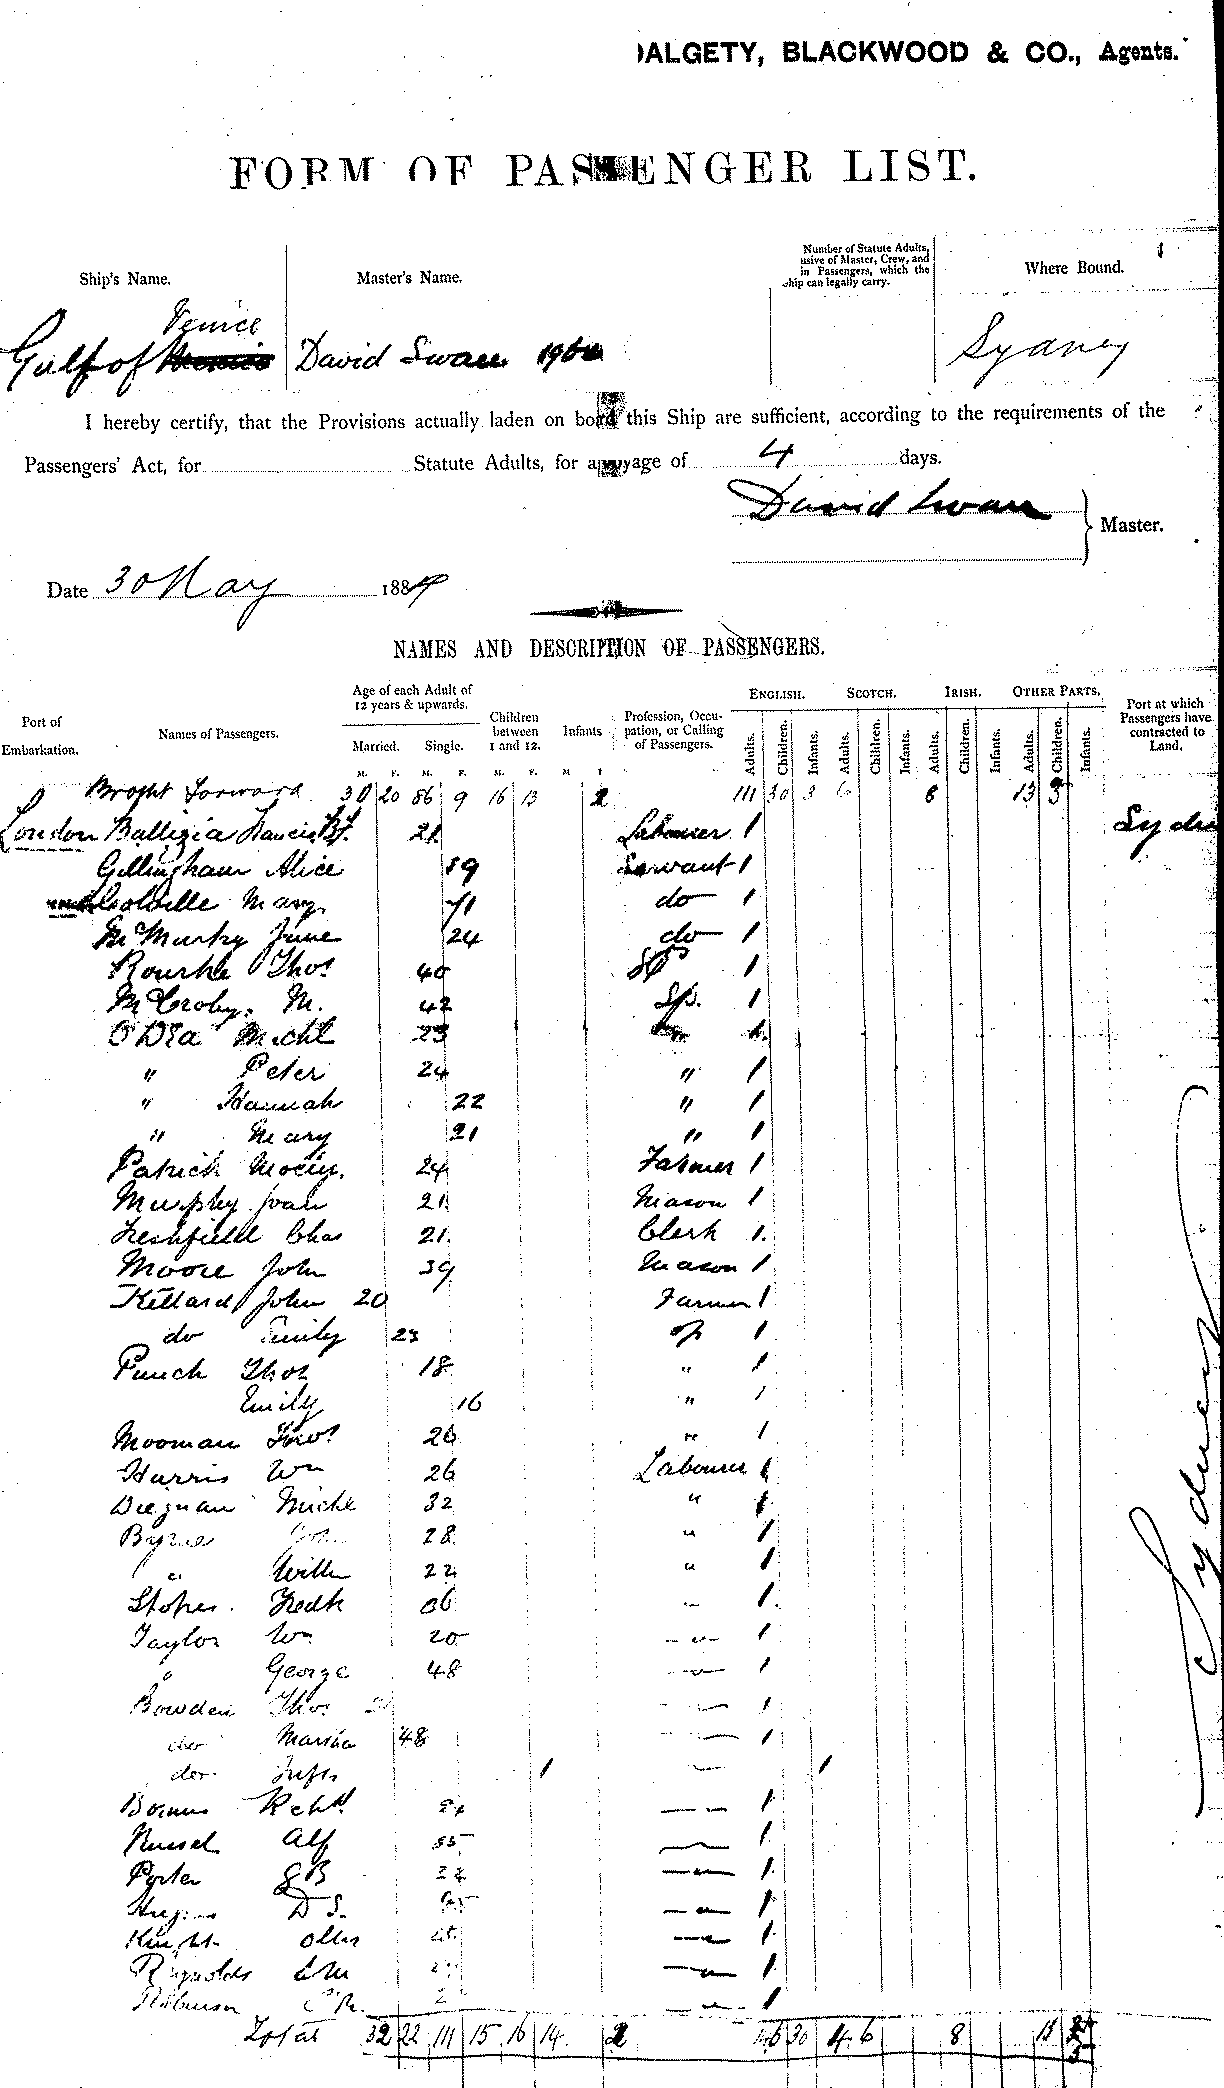 DALGETY, BLACKWOOD & CO., Agents.
FORM OF PASSENGER LIST.
Ship's Name.
Master's Name.
Number of Statute Adults,
usive of Master, Crew, and
in Passengers, which the
ship can legally carry.
Where Bound.
Venice
Gulf of
David Swan
Sydney
I hereby certify, that the Provisions actually laden on board this Ship are sufficient, according to the requirements of the
Passengers' Act, for Statute Adults, for a voyage of 4 days.
David Swan
Master.
Date 30 May 1889
NAMES AND DESCRIPTION OF PASSENGERS.
Port of Embarkation.
Names of Passengers.
Age of each Adult of 12 years & upwards.
Married. Single.
Children between 1 and 12.
Infants
Profession, Occupation, or Calling of Passengers.
ENGLISH. SCOTCH. IRISH. OTHER PARTS.
Adults. Children. Infants. Adults. Children. Infants. Adults. Children. Infants. Adults. Children. Infants.
Port at which Passengers have contracted to Land.
M. F. M. F. M. F. M
Broght Forward 30 20 86 9 16 13 2 111 30 3 6 8 13 3
London Francis 21 Labourer 1
Gillingham Alice 19 Servant 1
Colville Mary do 1
McMurtry Jane 24 do 1
Rourke Thos 40 1
McCroby. M. 42 Sp. 1
O'Dea Michl 23
" Peter 24 " 1
" Hannah 22 " 1
" Mary 21 " 1
Patrick 24 Farmer 1
Murphy Joan 21 Mason 1
Chas 21. Clerk 1.
Moore John 39 Mason 1
Killard John 20 Farmer 1
do Emily 23 1
Punch Thos 18 " 1
Emily 16 " 1
Mooman 26 " 1
Harris Wm 26 Labourer 1
Michl 32 " 1
Byrnes 28 " 1
" Willm 22 " 1
Stokes. Fredk 36 1
Taylor Wm 20 — " — 1
" George 48 — " — 1
Bowden Thos 1
do Martha 48 1
do Infts 1 1
Richd 1
Russel Alf 1
Porter 1
D S. 1
Knight 1
Reynolds 1
Robinson 1
Total 32 22 111 15 16 14 2 30 4 6 8
Sydney